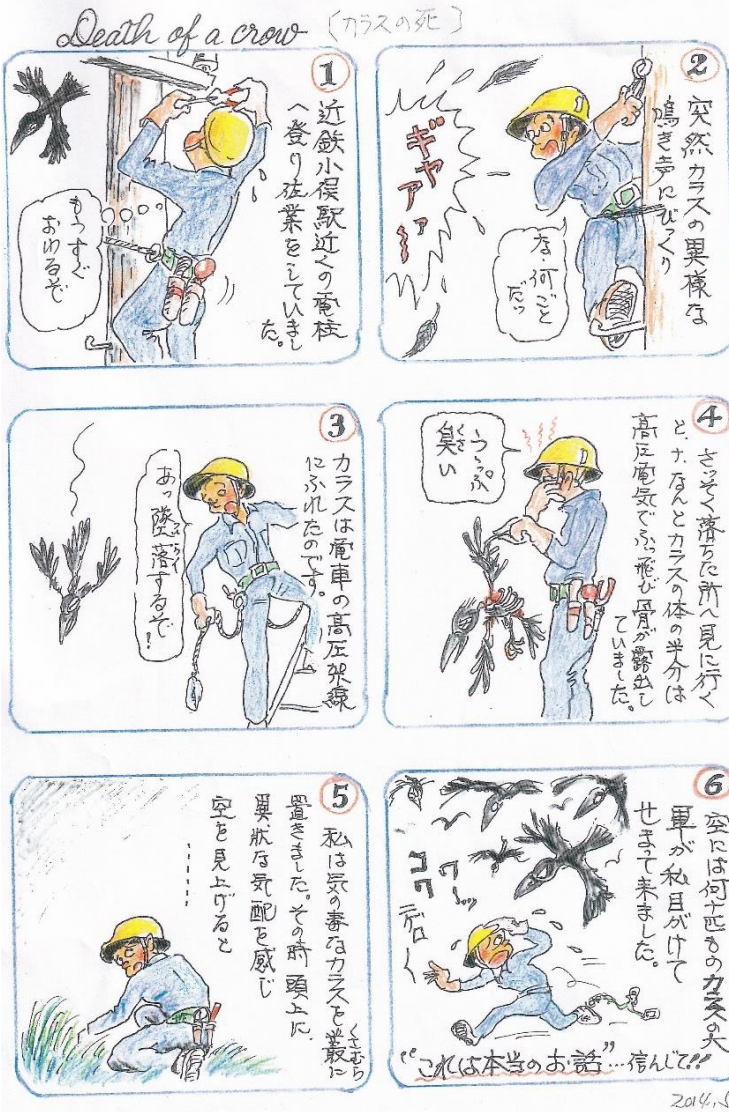 Death of a crow (カラスの死)
1
近鉄小俣駅近くの電柱
へ登り作業をしていまし
た。
もうすぐ
おわるぞ
2
突然カラスの異様な
鳴き声にびっくり
ギャアァ〜
な、何ごと
だっ
3
カラスは電車の高圧架線
にふれたのです。
あっ墜落するぞ!
ついらく
4
さっそく落ちた所へ見に行く
と、ナ、なんとカラスの体の半分は
高圧電気でふっ飛び骨が露出し
ていました。
うっぷ
臭い
くさ
5
私は気の毒なカラスを叢に
くさむら
置きました。その時頭上に、
異状な気配を感じ
空を見上げると
………
6
空には何十匹ものカラスの大
軍が私目がけて
せまって来ました。
ワーッ
コワ
デローく
"これは本当のお話"…信んじて!!
2014.5